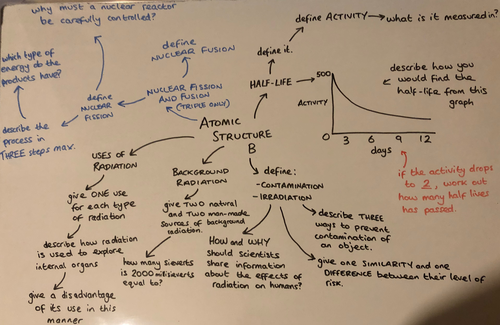 why must a nuclear reactor
be carefully controlled?
which type of
energy do the
products have?
define
NUCLEAR FUSION
define
NUCLEAR
FISSION
NUCLEAR FISSION
AND FUSION
(TRIPLE ONLY)
describe the
process in
THREE steps max.
define ACTIVITY
what is it measured in?
define it.
HALF-LIFE
500
ACTIVITY
0
3
6
9
12
days
describe how you
would find the
half-life from this
graph
if the activity drops
to 2, work out
how many half lives
has passed.
ATOMIC
STRUCTURE
B
USES OF
RADIATION
give ONE use
for each type
of radiation
describe how radiation
is used to explore
internal organs
give a disadvantage
of its use in this
manner
BACKGROUND
RADIATION
give TWO natural
and TWO man-made
sources of background
radiation.
how many sieverts
is 2000 millisieverts
equal to?
define:
- CONTAMINATION
- IRRADIATION
HOW and WHY
should scientists
share information
about the effects of
radiation on humans?
describe THREE
ways to prevent
contamination of
an object.
give one SIMILARITY and one
DIFFERENCE between their level of
risk.